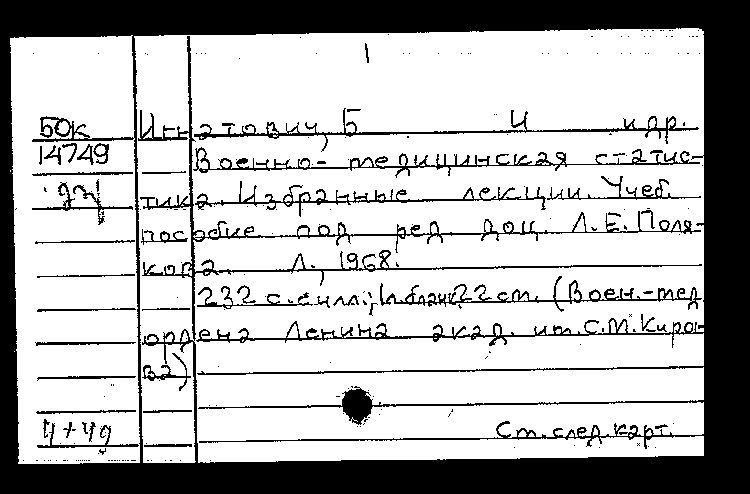 1
БОк Игнатович, Б И и др.
14749 Военно-медицинская статис-
тика. Избранные лекции. Учеб.
пособие под ред. доц. Л.Е.Поля-
кова. Л., 1968.
232 с. с илл.; 1 л.бланк; 22 см. (Воен.-мед
ордена Ленина акад. им. С.М.Киро-
ва)
Ч+Чд Ст. след. карт.